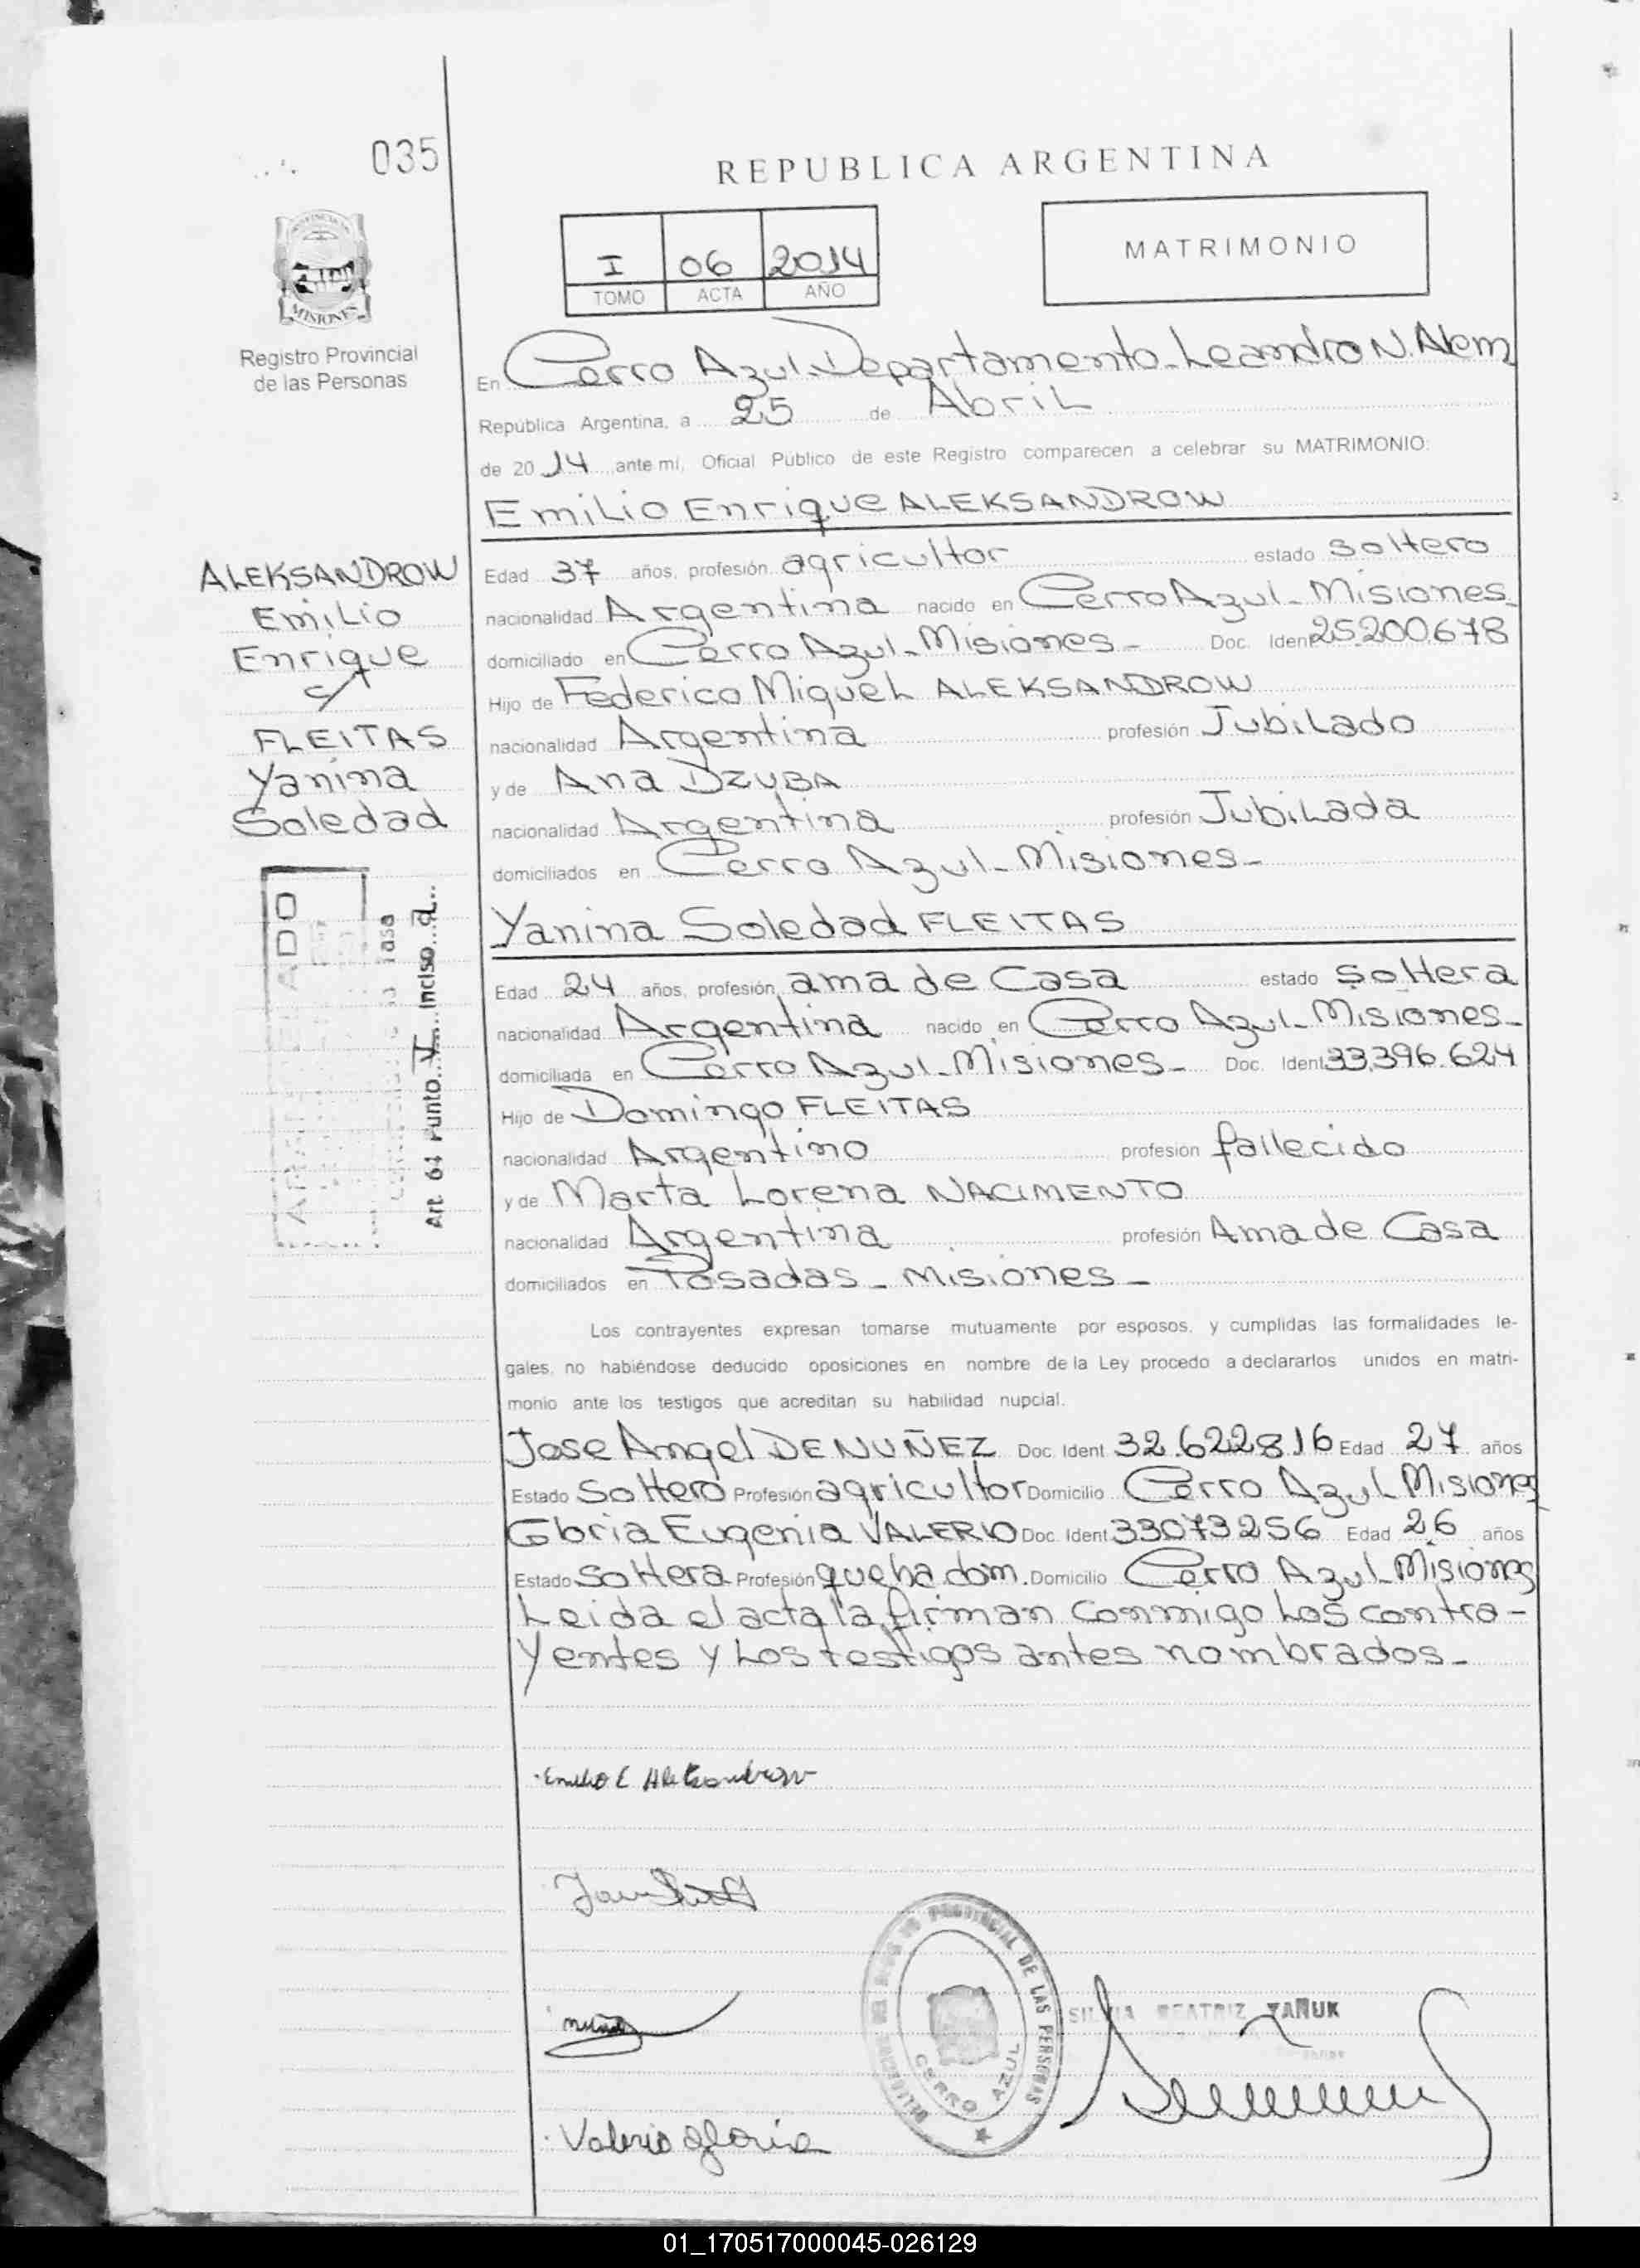 035
REPUBLICA ARGENTINA
I 06 2014
TOMO ACTA AÑO
MATRIMONIO
MISIONES
Registro Provincial
de las Personas
En Cerro Azul Departamento Leandro N. Alem
República Argentina, a 25 de Abril
de 2014 ante mi, Oficial Público de este Registro comparecen a celebrar su MATRIMONIO:
Emilio Enrique ALEKSANDROW
ALEKSANDROW
Emilio
Enrique
c/
FLEITAS
Yanina
Soledad
Edad 37 años, profesión agricultor estado soltero
nacionalidad Argentina nacido en Cerro Azul - Misiones
domiciliado en Cerro Azul - Misiones - Doc. Ident 25.200.678
Hijo de Federico Miguel ALEKSANDROW
nacionalidad Argentina profesión Jubilado
y de Ana DZYBA
nacionalidad Argentina profesión Jubilada
domiciliados en Cerro Azul - Misiones -
Yanina Soledad FLEITAS
Edad 24 años, profesión ama de Casa estado soltera
nacionalidad Argentina nacido en Cerro Azul - Misiones -
domiciliada en Cerro Azul - Misiones - Doc. Ident 33.396.624
Hijo de Domingo FLEITAS
nacionalidad Argentino profesion fallecido
y de Marta Lorena NACIMENTO
nacionalidad Argentina profesión Ama de Casa
domiciliados en Posadas - Misiones -
Art. 64 Punto V Inciso a
Los contrayentes expresan tomarse mutuamente por esposos, y cumplidas las formalidades le-
gales, no habiéndose deducido oposiciones en nombre de la Ley procedo a declararlos unidos en matri-
monio ante los testigos que acreditan su habilidad nupcial.
Jose Angel DENUÑEZ Doc. Ident 32.622816 Edad 27 años
Estado Soltero Profesión agricultor Domicilio Cerro Azul Misiones
Gloria Eugenia VALERIO Doc. Ident 33073256 Edad 26 años
Estado Soltera Profesión queha. dom. Domicilio Cerro Azul - Misiones
Leida el acta la firman conmigo Los contra-
yentes y Los testigos antes nombrados -
Emilio E Aleksandrow
PROVINCIAL DE LAS PERSONAS
CERRO AZUL
BEATRIZ YAÑUK
Valerio Gloria
01_170517000045-026129